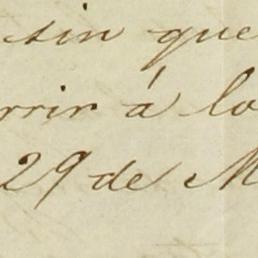 sin que
rrir á lo
29 de M